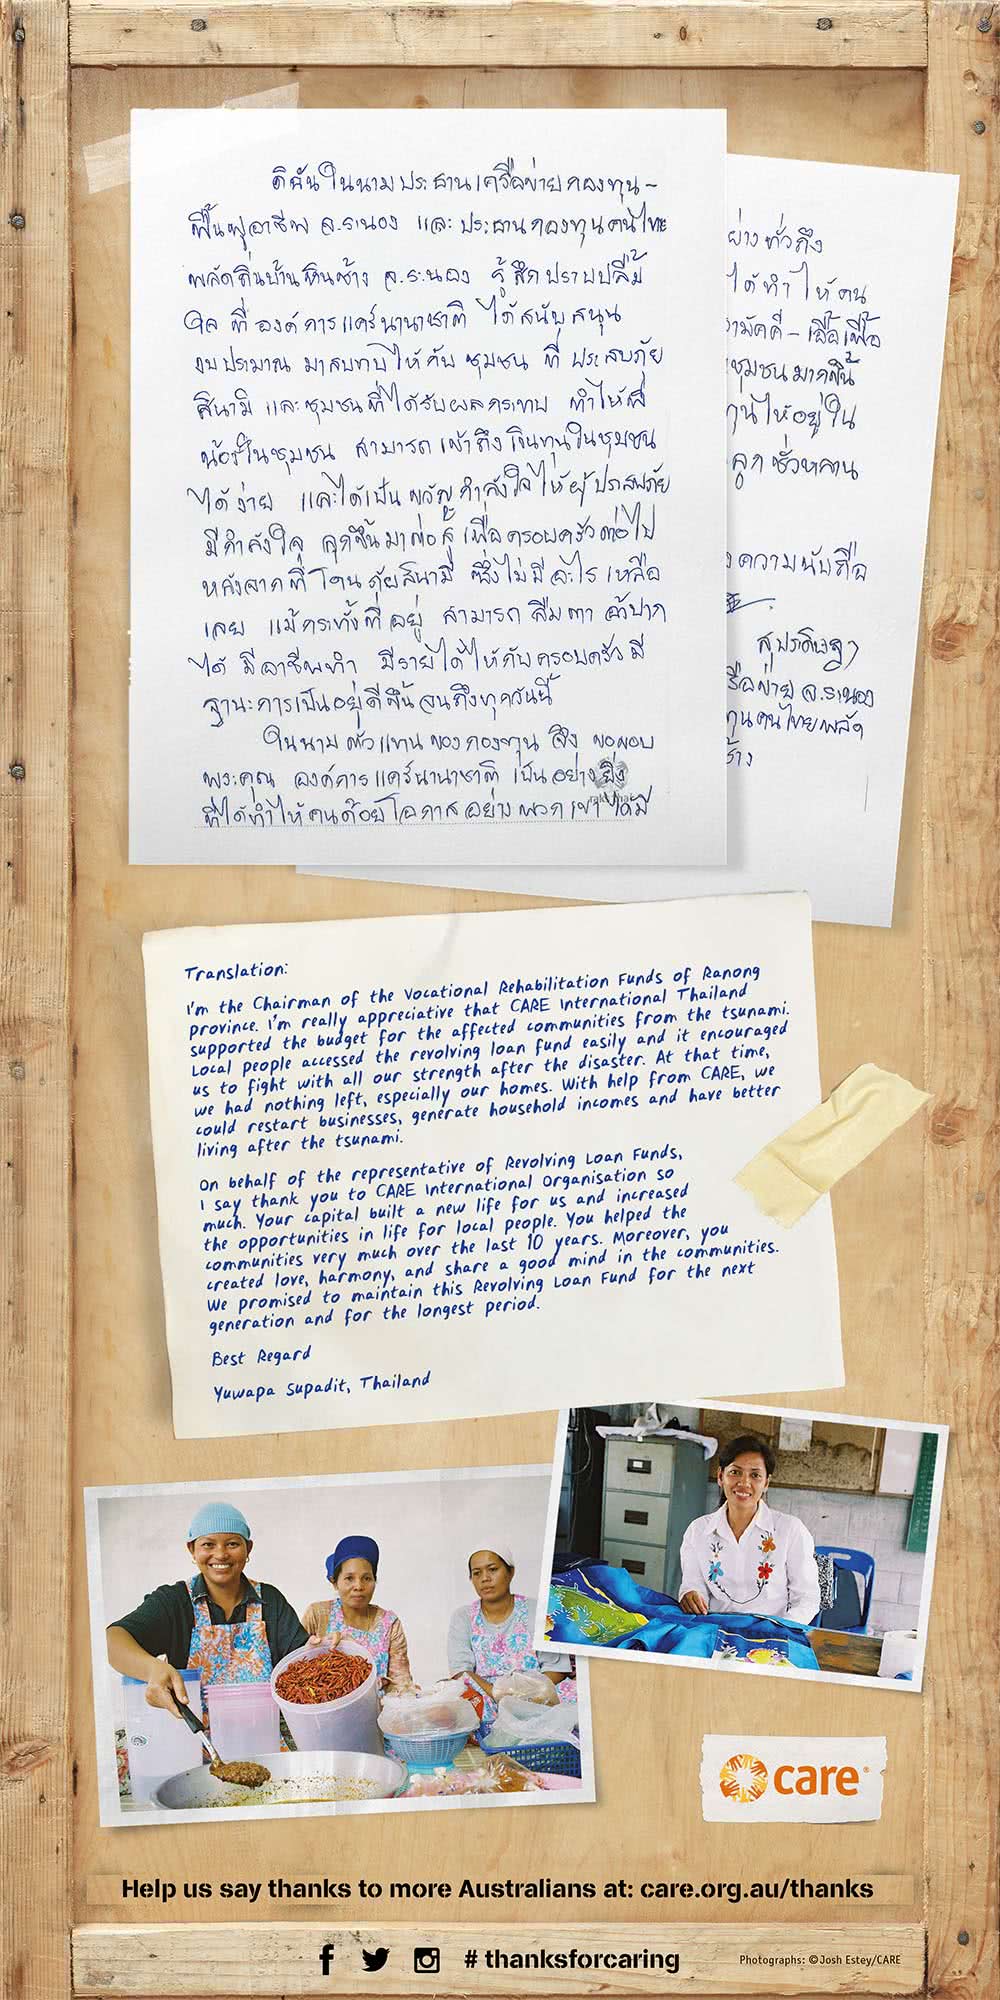 ดิฉันในนามประธานเครือข่ายกองทุน-
ฟื้นฟูอาชีพ จ.ระนอง และประธานกองทุนคนไทย
พลัดถิ่นบ้านหินช้าง จ.ระนอง รู้สึกปราบปลื้ม
ใจ ที่องค์การแคร์นานาชาติ ได้สนับสนุน
งบประมาณ มาสบทบให้กับชุมชน ที่ประสบภัย
สึนามิ และชุมชนที่ได้รับผลกระทบ ทำให้พี่
น้องในชุมชน สามารถเข้าถึงเงินทุนในชุมชน
ได้ง่าย และได้เป็นขวัญกำลังใจให้ผู้ประสบภัย
มีกำลังใจ ลุกขึ้นมาต่อสู้ เพื่อครอบครัวต่อไป
หลังจากที่โดนภัยสึนามิ ซึ่งไม่มีอะไรเหลือ
เลย แม้กระทั้งที่อยู่ สามารถลืมตา อ้าปาก
ได้ มีอาชีพทำ มีรายได้ให้กับครอบครัวมี
ฐานะการเป็นอยู่ดีขึ้นจนถึงทุกวันนี้
ในนามตัวแทนของกองทุน จึงขอขอบ
พระคุณ องค์การแคร์นานาชาติ เป็นอย่างยิ่ง
ที่ได้ทำให้คนด้อยโอกาสอย่างพวกเขาได้มี
ย่างทั่วถึง
ได้ทำให้คน
ามัคคี - เอื้อเฟื้อ
ชุมชนมากขึ้น
ทุนให้อยู่ใน
ลูกชั่วหลาน
งความนับถือ
สุประดิษฐา
รือข่าย จ.ระนอง
ทุนคนไทยพลัด
ช้าง
Translation:
I'm the Chairman of the Vocational Rehabilitation Funds of Ranong
province. I'm really appreciative that CARE International Thailand
supported the budget for the affected communities from the tsunami.
Local people accessed the revolving loan fund easily and it encouraged
us to fight with all our strength after the disaster. At that time,
we had nothing left, especially our homes. With help from CARE, we
could restart businesses, generate household incomes and have better
living after the tsunami.
On behalf of the representative of Revolving Loan Funds,
I say thank you to CARE International Organisation so
much. Your capital built a new life for us and increased
the opportunities in life for local people. You helped the
communities very much over the last 10 years. Moreover, you
created love, harmony, and share a good mind in the communities.
We promised to maintain this Revolving Loan Fund for the next
generation and for the longest period.
Best Regard
Yuwapa Supadit, Thailand
care®
Help us say thanks to more Australians at: care.org.au/thanks
# thanksforcaring
Photographs: ©Josh Estey/CARE